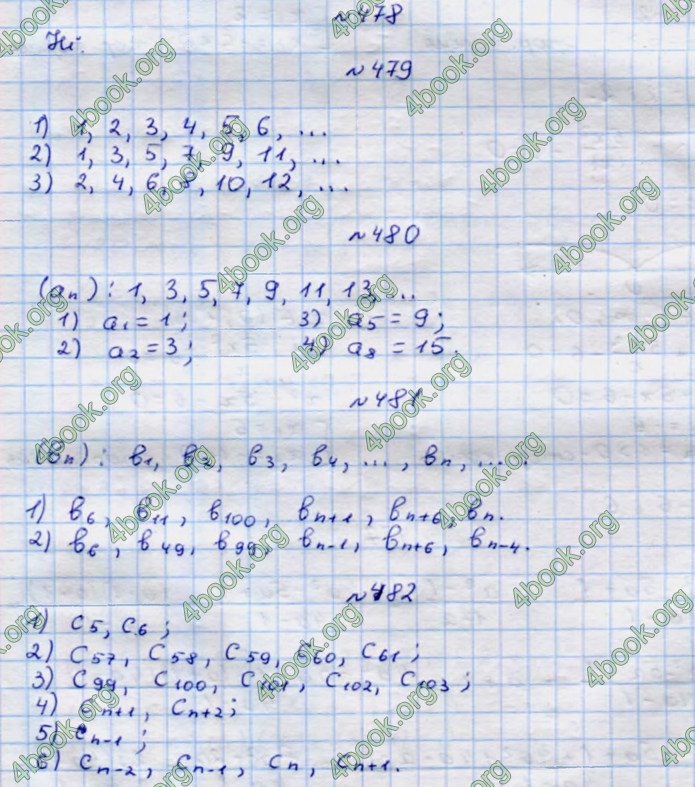 №478
Ні.
№479
1) 1, 2, 3, 4, 5, 6, ...
2) 1, 3, 5, 7, 9, 11, ...
3) 2, 4, 6, 8, 10, 12, ...
№480
(aₙ): 1, 3, 5, 7, 9, 11, 13, ...
1) a₁ = 1; 3) a₅ = 9;
2) a₂ = 3; 4) a₈ = 15.
№481
(вₙ): в₁, в₂, в₃, в₄, ..., вₙ, ....
1) в₆, в₁₁, в₁₀₀, вₙ₊₁, вₙ₊₆, вₙ.
2) в₆, в₄₉, в₉₉, вₙ₋₁, вₙ₊₆, вₙ₋₄.
№482
1) c₅, c₆;
2) c₅₇, c₅₈, c₅₉, c₆₀, c₆₁;
3) c₉₉, c₁₀₀, c₁₀₁, c₁₀₂, c₁₀₃;
4) cₙ₊₁, cₙ₊₂;
5) cₙ₋₁;
6) cₙ₋₂, cₙ₋₁, cₙ, cₙ₊₁.
4book.org